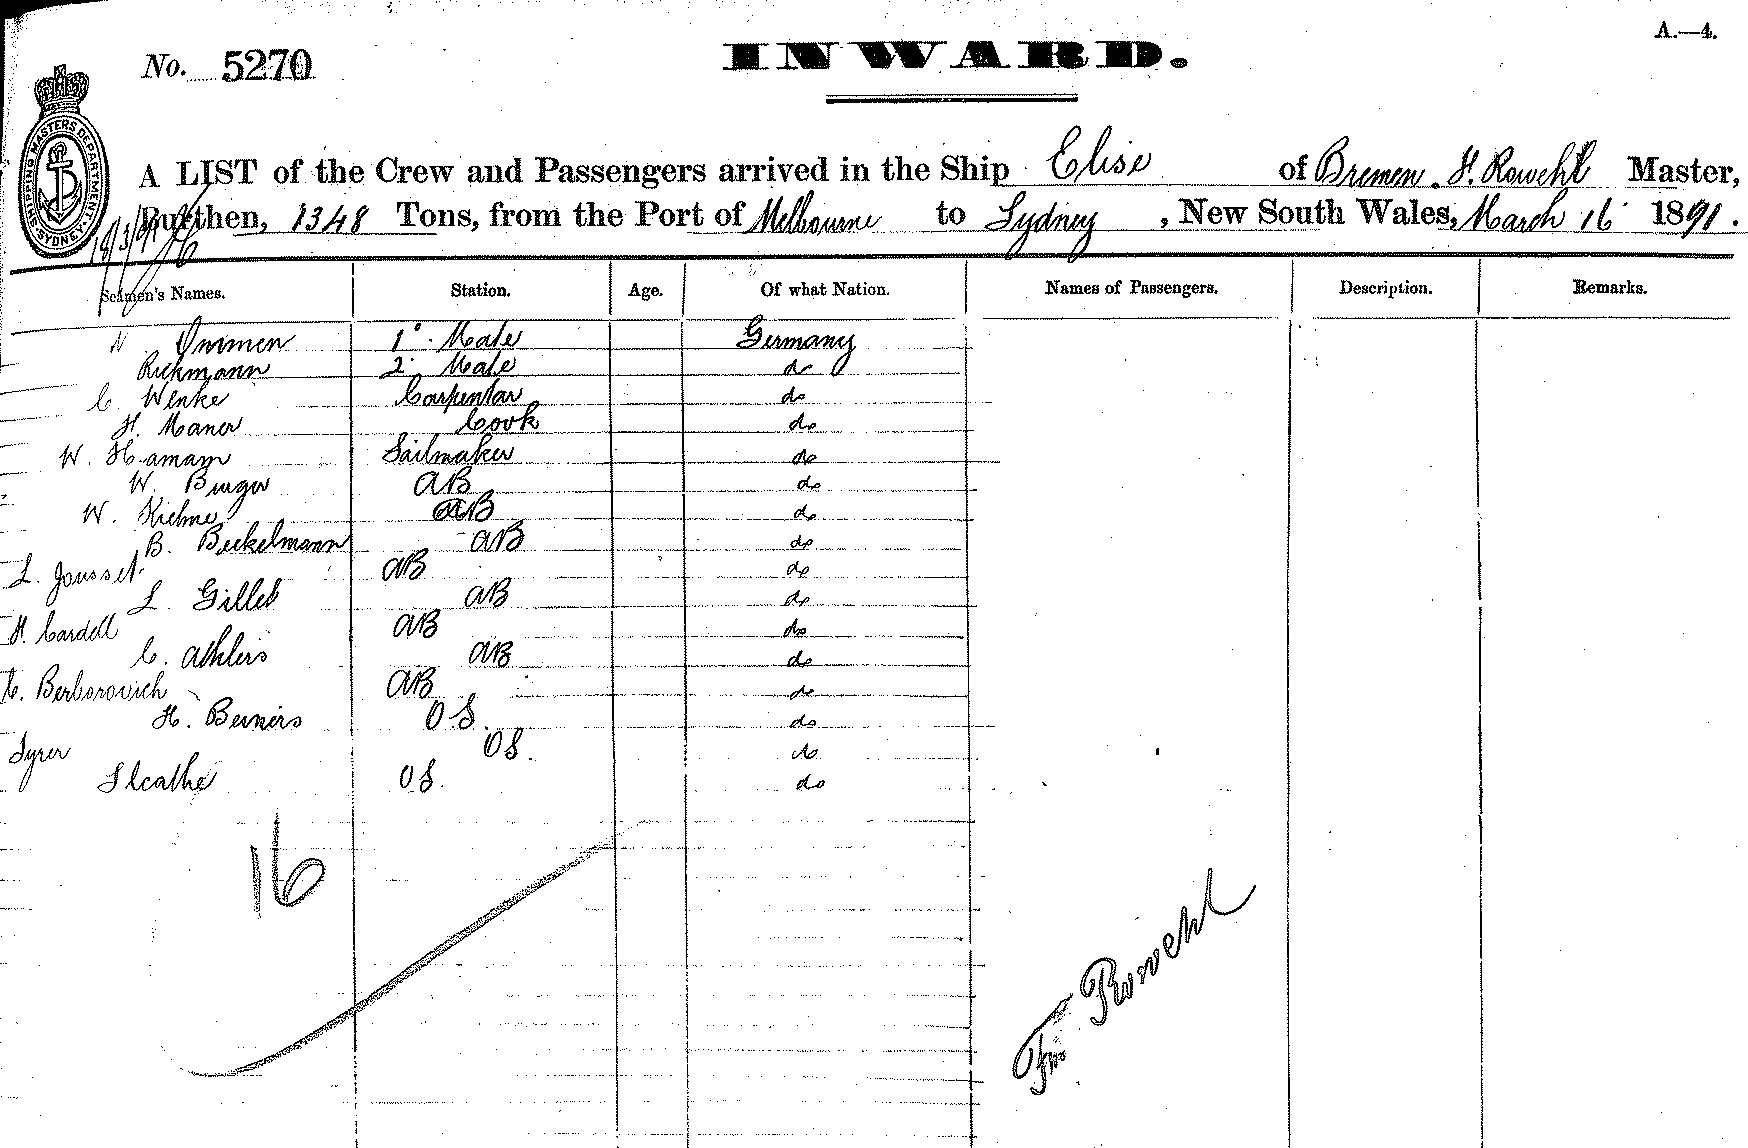 A.—4.
No. 5270
INWARD.
SHIPPING MASTERS DEPARTMENT SYDNEY
A LIST of the Crew and Passengers arrived in the Ship Elise of Bremen. H. Rowehl Master,
Burthen, 1348 Tons, from the Port of Melbourne to Sydney, New South Wales, March 16 1891.
Seamen's Names. Station. Age. Of what Nation. Names of Passengers. Description. Remarks.
Ommen 1° Mate Germany
Rickmann 2 Mate do
C. Wenke Carpentar do
H. Maner Cook do
W. Hamam Sailmaker do
W. Burger AB do
W. Kuhne AB do
B. Beckelmann AB do
L. Jousset AB do
L. Gillet AB do
H. Cardell AB do
C. Athlers AB do
C. Berborovich AB do
H. Beiners OS. do
Syrer OS. do
OS. do
16
Rowehl